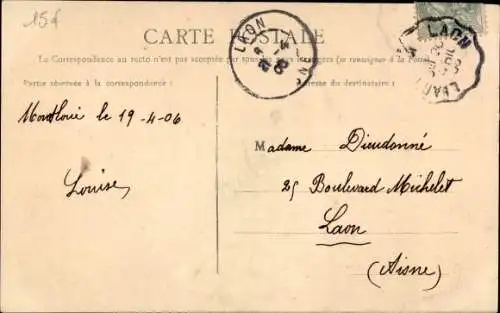 15f
CARTE POSTALE
La Correspondance au recto n'est pas acceptée par tous les pays étrangers (se renseigner à la Poste)
Partie réservée à la correspondance
Adresse du destinataire
LAON
AISNE
LAON
Montloué le 19-4-06
Louise
Madame Dieudonné
25 Boulevard Michelet
Laon
(Aisne)